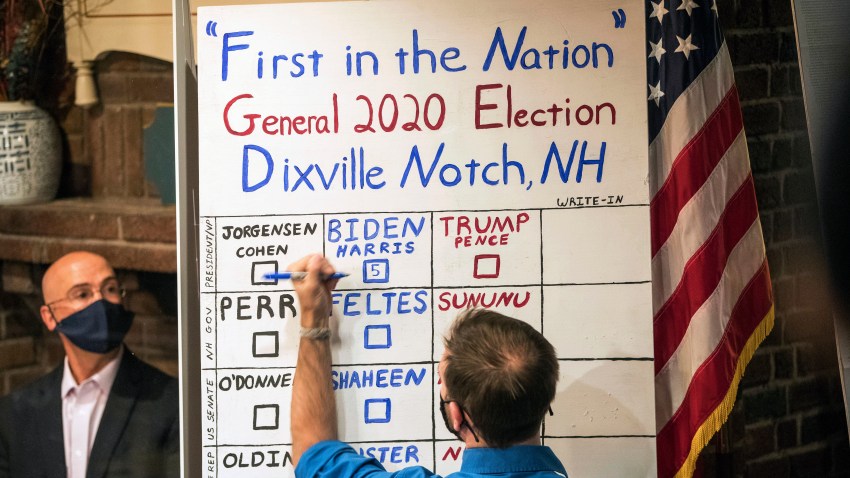 "First in the Nation"
General 2020 Election
Dixville Notch, NH
WRITE-IN
PRESIDENT/VP JORGENSEN COHEN BIDEN HARRIS 5 TRUMP PENCE
NH GOV PERR FELTES SUNUNU
US SENATE O'DONNE SHAHEEN
REP OLDIN STER